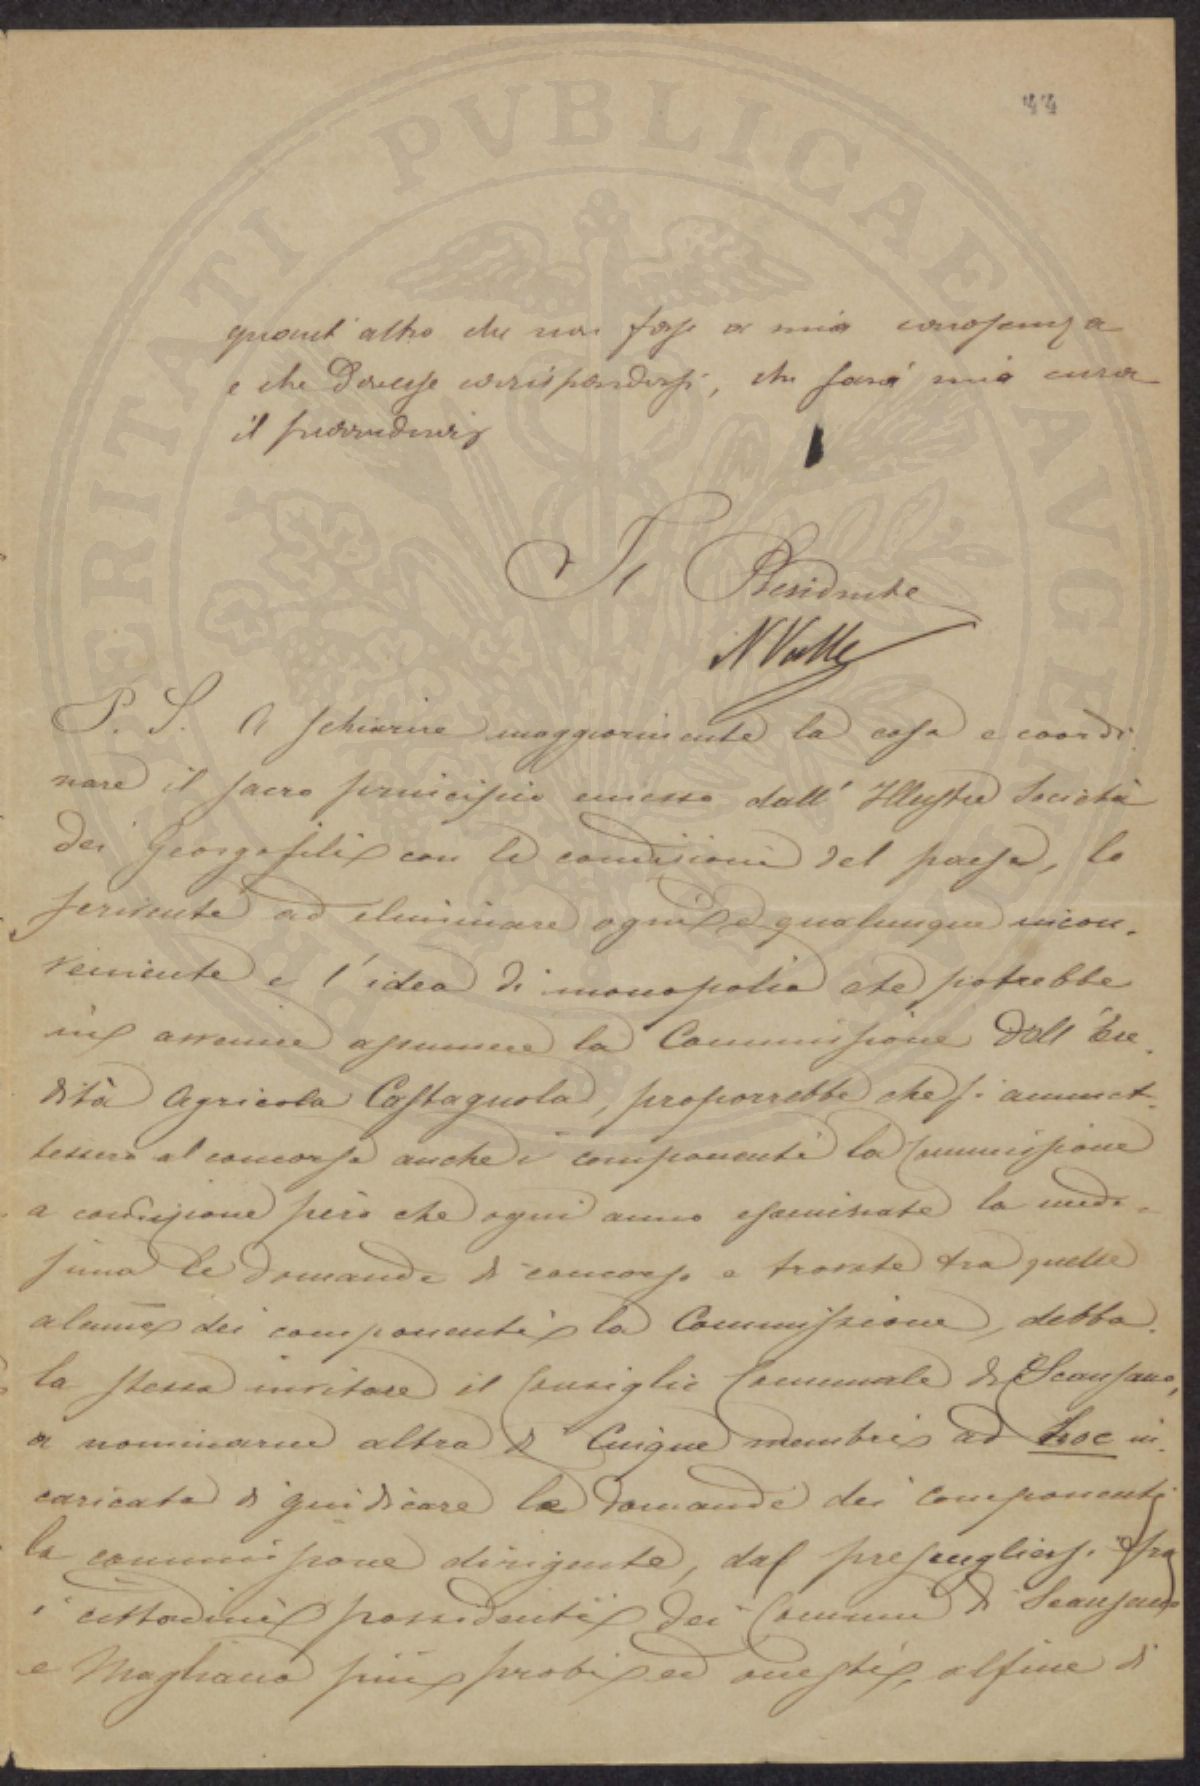 44
quant'altro che non fosse a mia conoscenza
e che Dovesse corrispondersi, che sarà mia cura
il provvedervi
Il Presidente
N Valle
P. S. A schiarire maggiormente la cosa e coordi-
nare il sacro principio emesso dall'Illustre Società
dei Georgofili con le condizioni del paese, lo
scrivente ad eliminare ogni e qualunque incon-
veniente e l'idea di monopolio che potrebbe
in avvenire assumere la Commissione Dell'Ere-
dità Agricola Castagnola, proporrebbe che si ammet-
tessero al concorso anche i componenti la Commissione
a condizione però che ogni anno esaminate la mede-
sima le domande di concorso e trovate tra quelle
alcune dei componenti la Commissione, debba
la stessa invitare il Consiglio Comunale di Scansano,
a nominarne altra di Cinque membri ad hoc in-
caricata di giudicare le domande dei componenti
la commissione dirigente, da prescegliersi fra
i cittadini possidenti dei Comuni di Scansano
e Magliano più probi ed onesti, alfine di
VERITATI PVBLICAE AVGENDAE